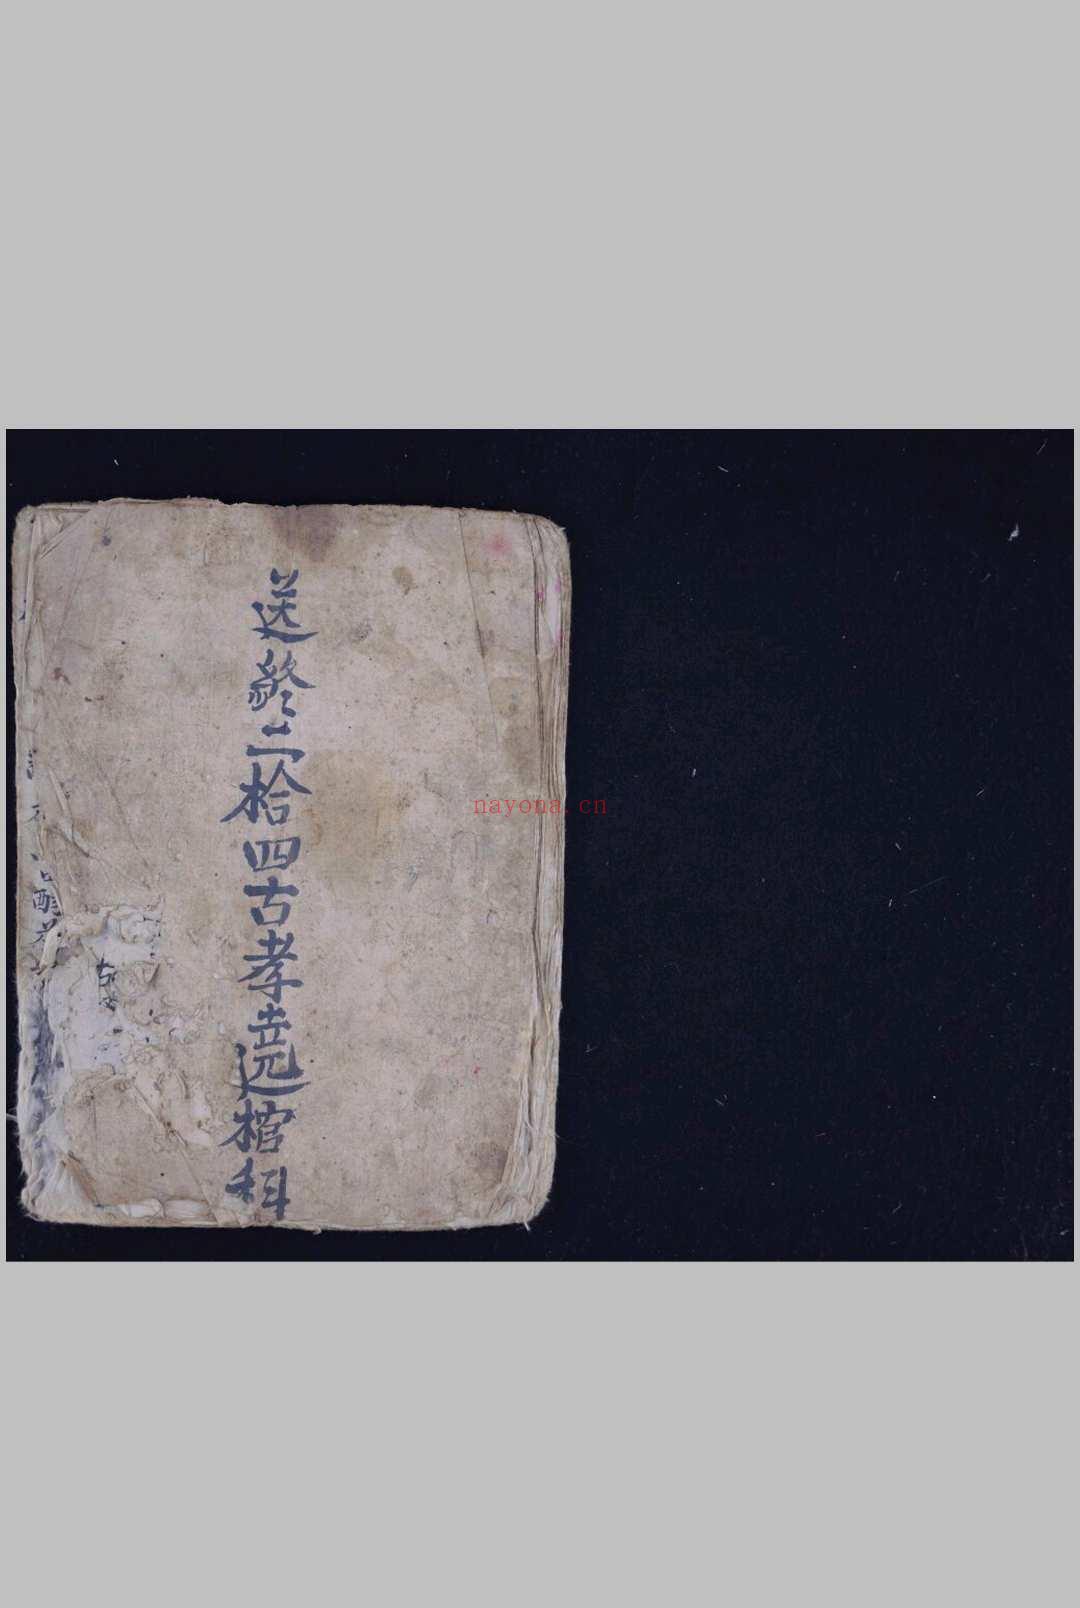 送終二拾四古孝遶棺科
nayona.cn
酬